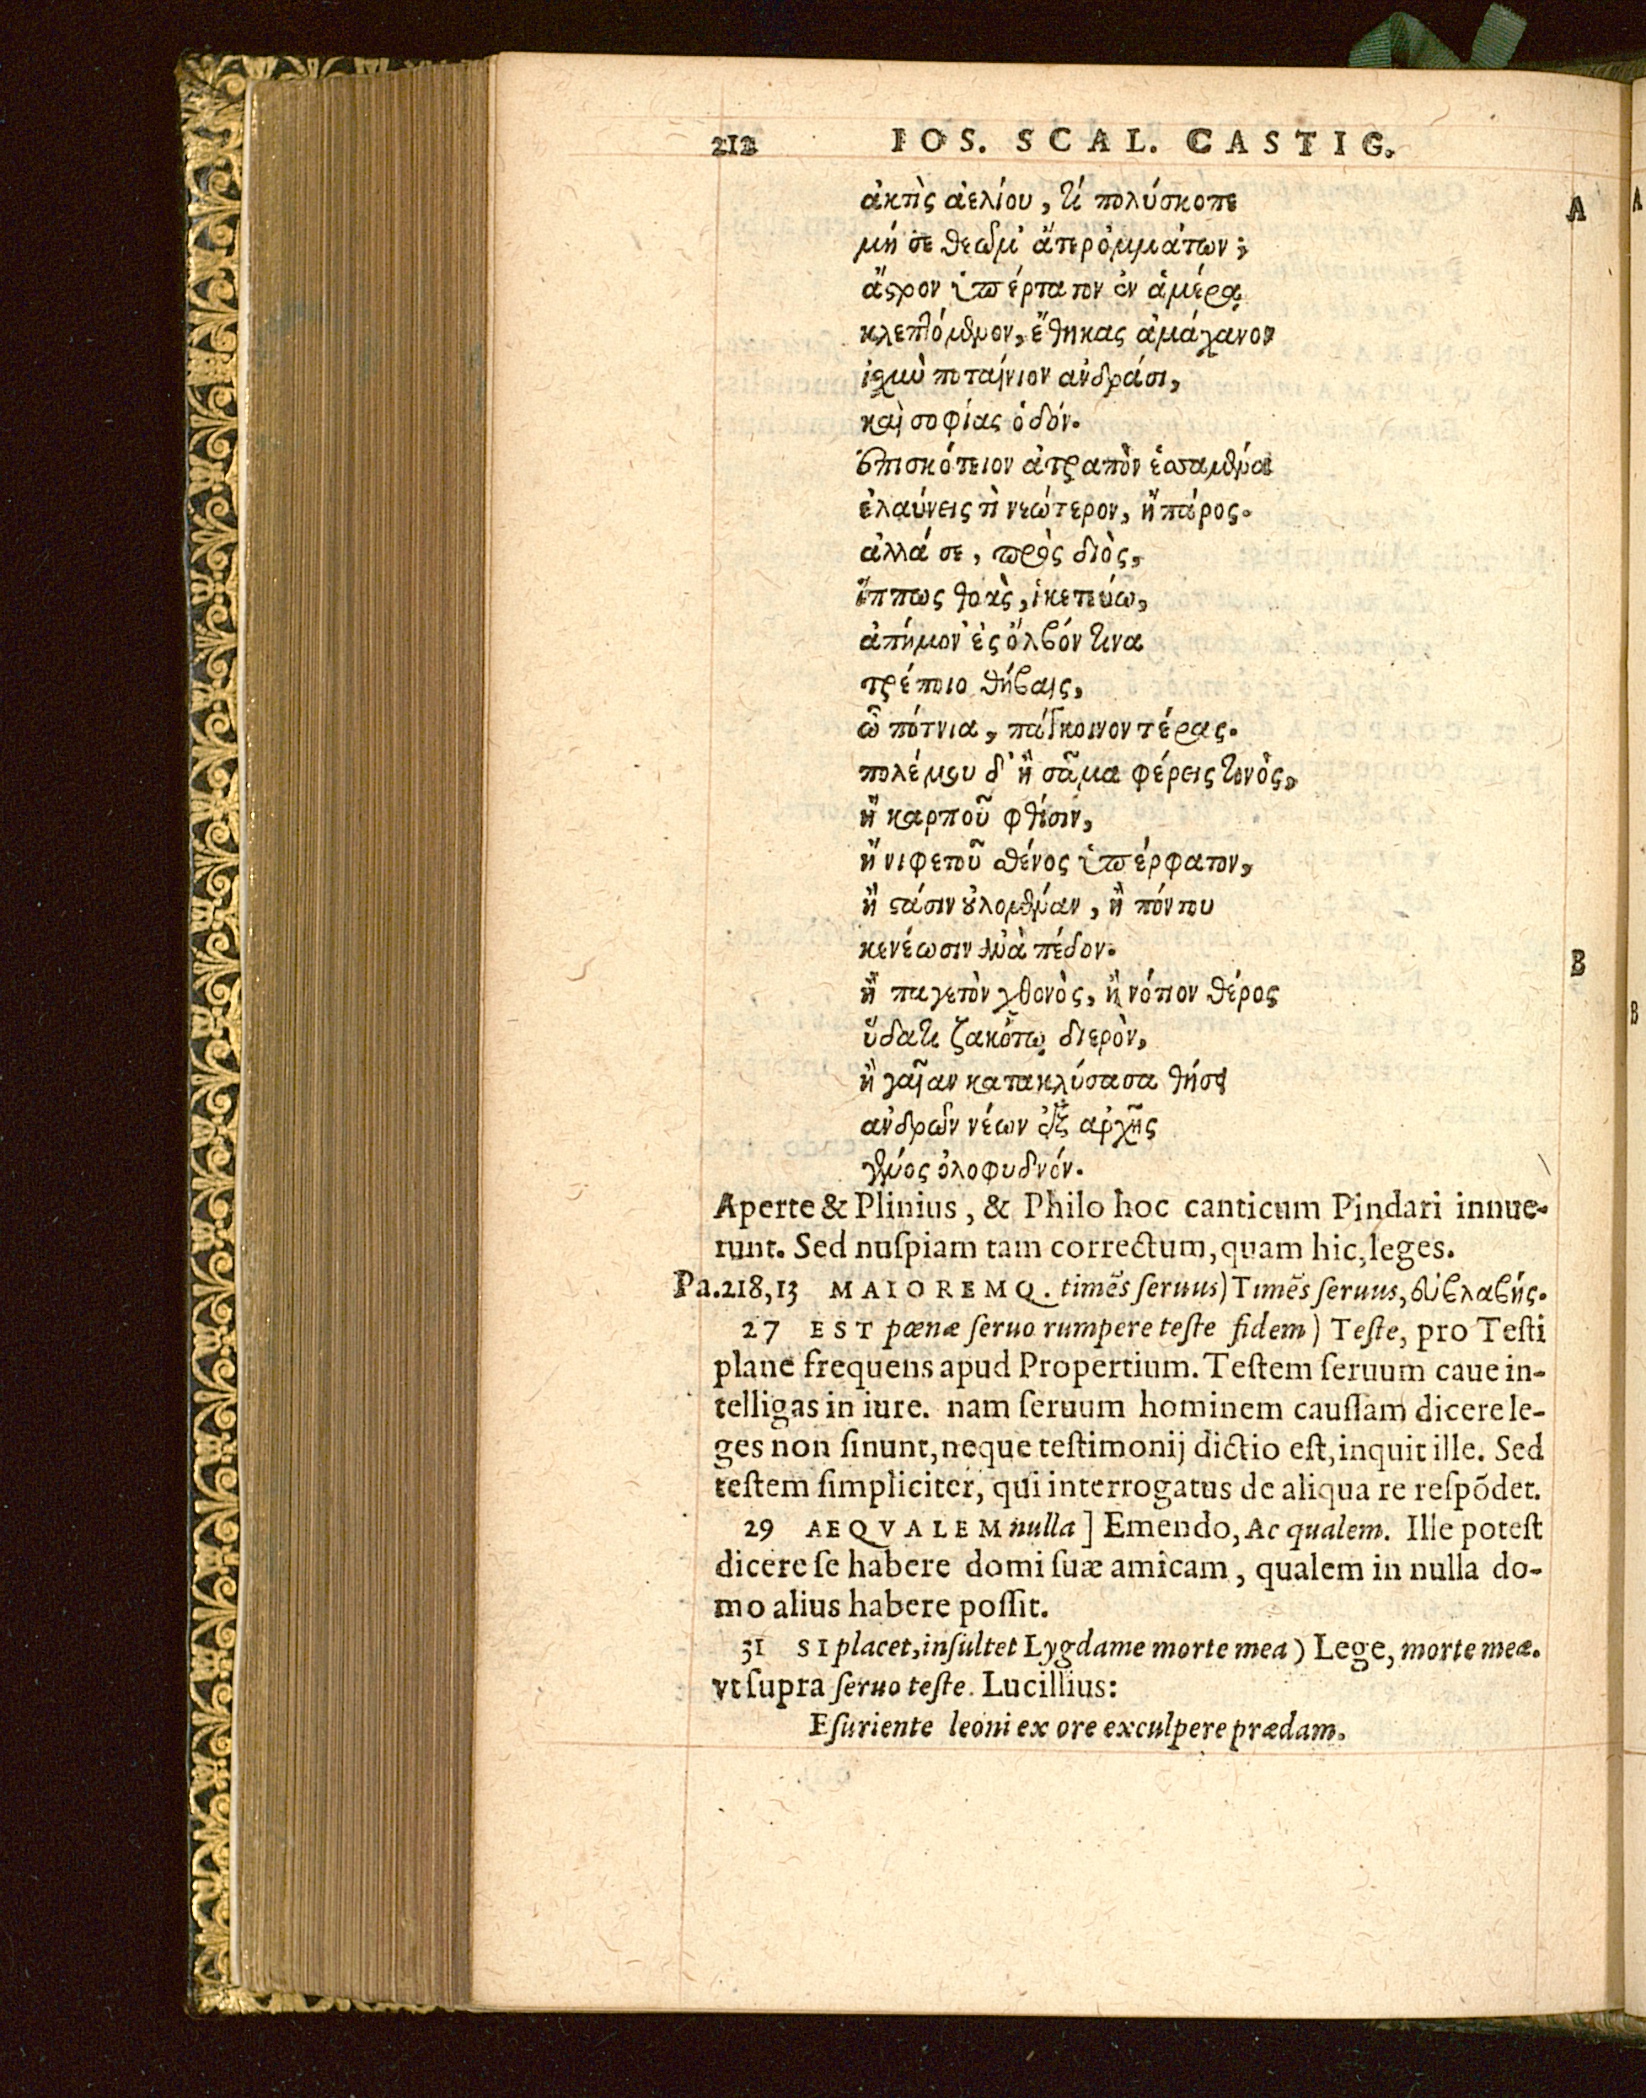 212 IOS. SCAL. CASTIG.
ἀκτὶς ἀελίου, τί πολύσκοπε
A
μή σε θεῶμ' ἄτερ ὀμμάτων;
ἄϛρον ὑπέρτατον ἐν ἁμέρᾳ
κλεπτόμενον, ἔθηκας ἀμάχανον
ἰσχὺ ποταίνιον ἀνδράσι,
καὶ σοφίας ὁδόν.
ἐπισκότειον ἀτραπὸν ἐσσαμένα
ἐλαύνεις τὶ νεώτερον, ἢ πάρος.
ἀλλά σε, πρὸς διὸς,
ἵππως θοὰς, ἱκετεύω,
ἀπήμον' ἐς ὄλβόν τινα
τρέποιο θήβαις,
ὦ πότνια, πάγκοινον τέρας.
πολέμου δ' ἢ σᾶμα φέρεις τινὸς,
ἢ καρποῦ φθίσιν,
ἢ νιφετοῦ σθένος ὑπέρφατον,
ἢ ϛάσιν οὐλομέναν, ἢ πόντου
κενέωσιν ἀνὰ πέδον.
B
ἢ παγετὸν χθονὸς, ἢ νότιον θέρος
ὕδατι ζακότῳ διερὸν,
ἢ γαῖαν κατακλύσασα θήσει
ἀνδρῶν νέων ἐξ ἀρχῆς
γένος ὀλοφυδνόν.
Aperte & Plinius, & Philo hoc canticum Pindari innue-
runt. Sed nuſpiam tam correctum, quam hic, leges.
Pa.218,13 MAIOREMQ. timẽs ſeruus) Timẽs ſeruus, εὐλαβής.
27 EST pœnæ ſeruo rumpere teſte fidem) Teſte, pro Teſti
plane frequens apud Propertium. Teſtem ſeruum caue in-
telligas in iure. nam ſeruum hominem cauſſam dicere le-
ges non ſinunt, neque teſtimonij dictio eſt, inquit ille. Sed
teſtem ſimpliciter, qui interrogatus de aliqua re reſpõdet.
29 AEQVALEM nulla] Emendo, Ac qualem. Ille poteſt
dicere ſe habere domi ſuæ amicam, qualem in nulla do-
mo alius habere poſſit.
31 SI placet, inſultet Lygdame morte mea) Lege, morte meæ.
vt ſupra ſeruo teſte. Lucillius:
Eſuriente leoni ex ore exculpere prædam.
A
B